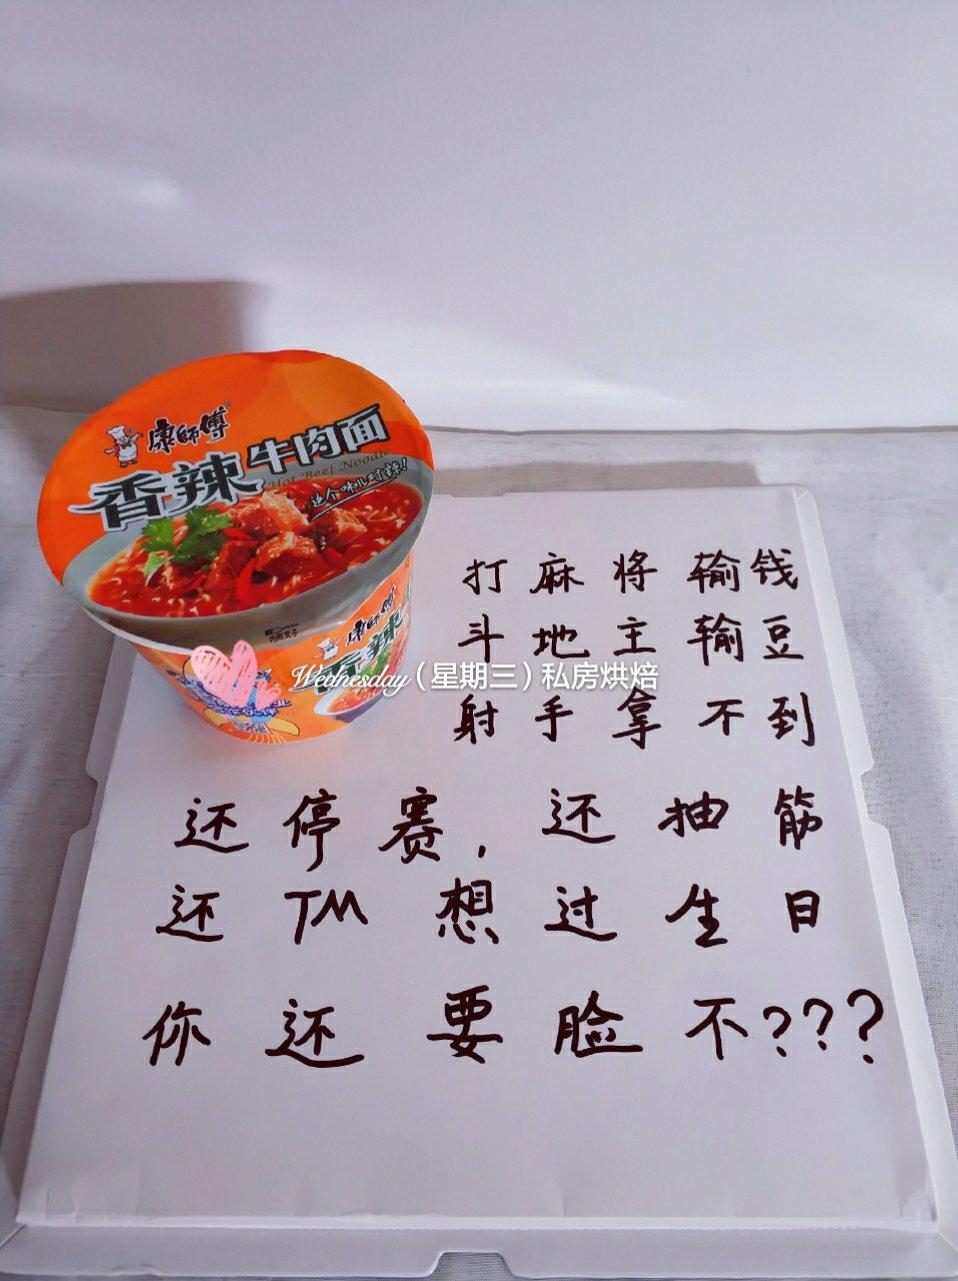 康師傅
香辣牛肉面
Hot Beef Noodle
这个味儿对辣!
内附叉子
康師傅
香辣
Wednesday(星期三)私房烘焙
打麻将输钱
斗地主输豆
射手拿不到
还停赛,还抽筋
还TM想过生日
你还要脸不???